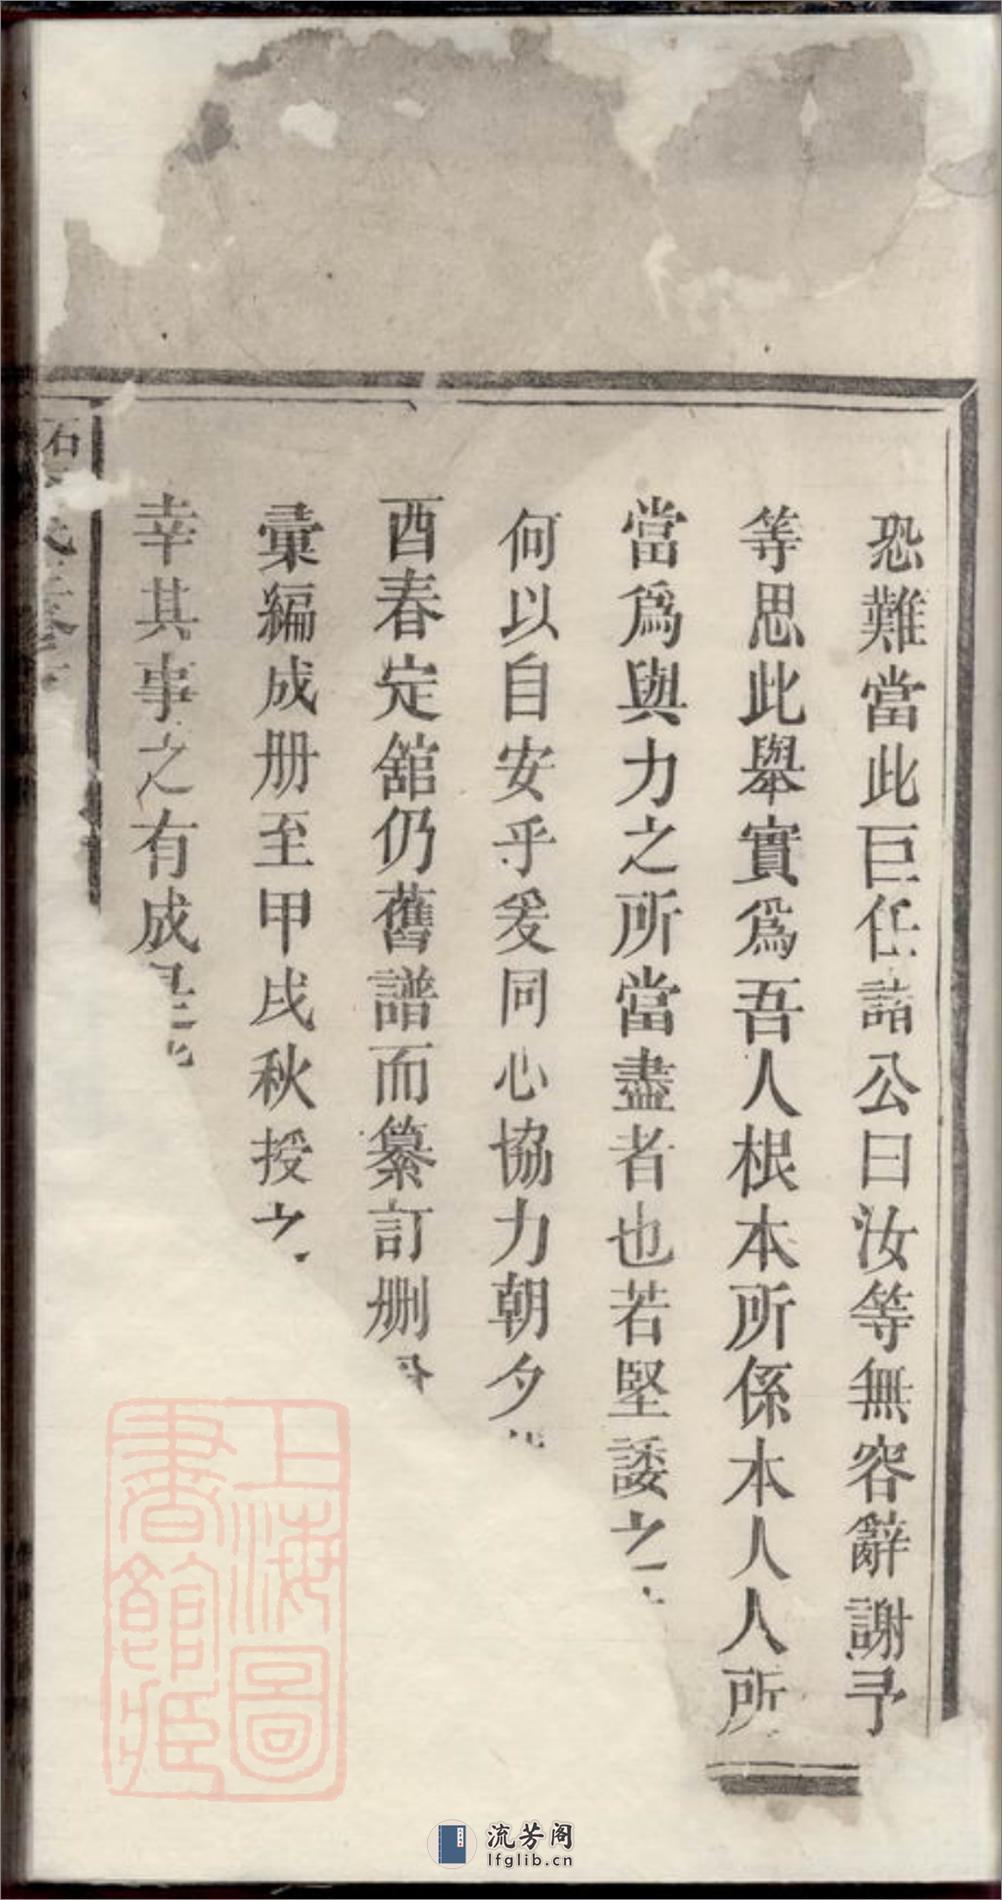 恐難當此巨任諸公曰汝等無容辭謝予
等思此舉實為吾人根本所係本人人所
當為與力之所當盡者也若堅諉之
何以自安乎爰同心協力朝夕
酉春定舘仍舊譜而纂訂刪
彙編成册至甲戌秋授之
幸其事之有成
石
上海圖書館藏
流芳阁
lfglib.cn